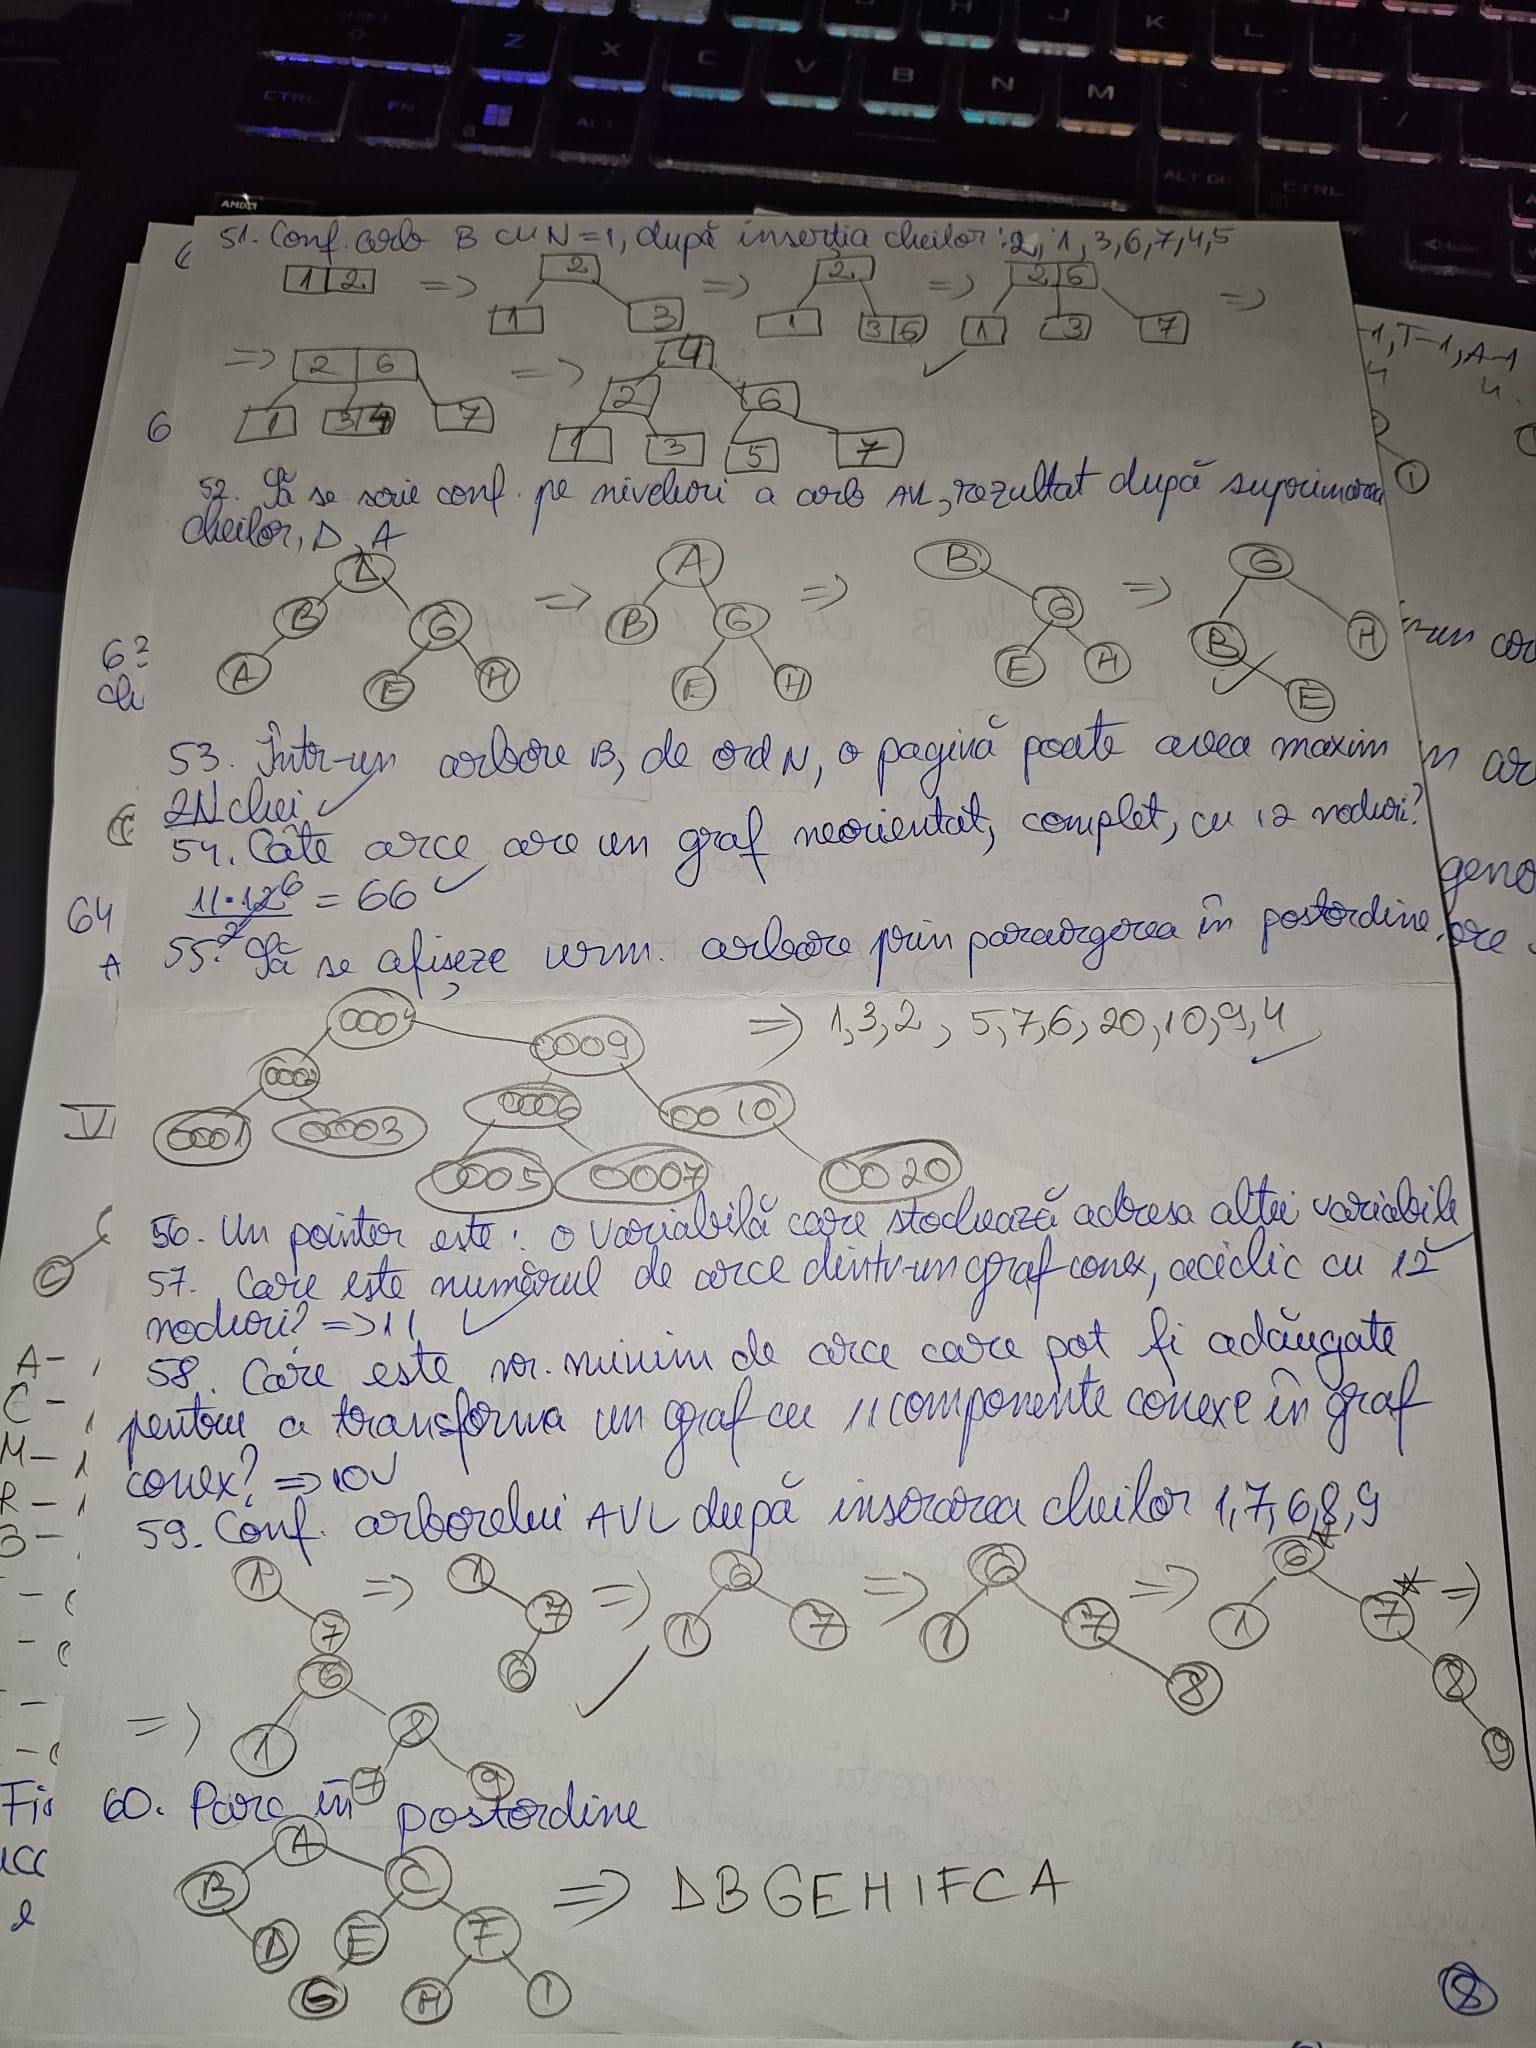 Z X C V B N M
K L
CTRL FN ALT
ALT GR CTRL
AMD
51. Conf. arb B cu N=1, după inserția cheilor: 2, 1, 3, 6, 7, 4, 5
1 2 => 2 => 2 => 2 6 =>
1 3 1 3 6 1 3 7
=> 2 6 => 4
1 3 4 7 2 6
1 3 5 7
52. Să se scrie conf. pe niveluri a arb AVL, rezultat după suprimarea
cheilor, D, A
D => A => B => G
B G B G G B H
A E H E H E H E
53. Într-un arbore B, de ord N, o pagină poate avea maxim
2N chei
54. Câte arce are un graf neorientat, complet, cu 12 noduri?
11·12 6
2 = 66
55. Să se afișeze urm. arbore prin parcurgerea în postordine.
0004 => 1,3,2, 5,7,6,20,10,9,4
0002 0009
0001 0003 0006 0010
0005 0007 0020
56. Un pointer este: o variabilă care stochează adresa altei variabile
57. Care este numărul de arce dintr-un graf conex, aciclic cu 12
noduri? => 11
58. Care este nr. minim de arce care pot fi adăugate
pentru a transforma un graf cu 11 componente conexe în graf
conex? => 10
59. Conf. arborelui AVL după inserarea cheilor 1,7,6,8,9
1 => 1 => 6 => 6 => 6* =>
7 7 1 7 1 7 1 7*
6 8 8
9
=> 6
1 8
7 9
60. Parc în postordine
A => DBGEHIFCA
B C
D E F
G H I
8
6
63
64
A
VI
C
A-
C-
M- 1
R- 1
-1, T-1, A-1
4 4
I
geno